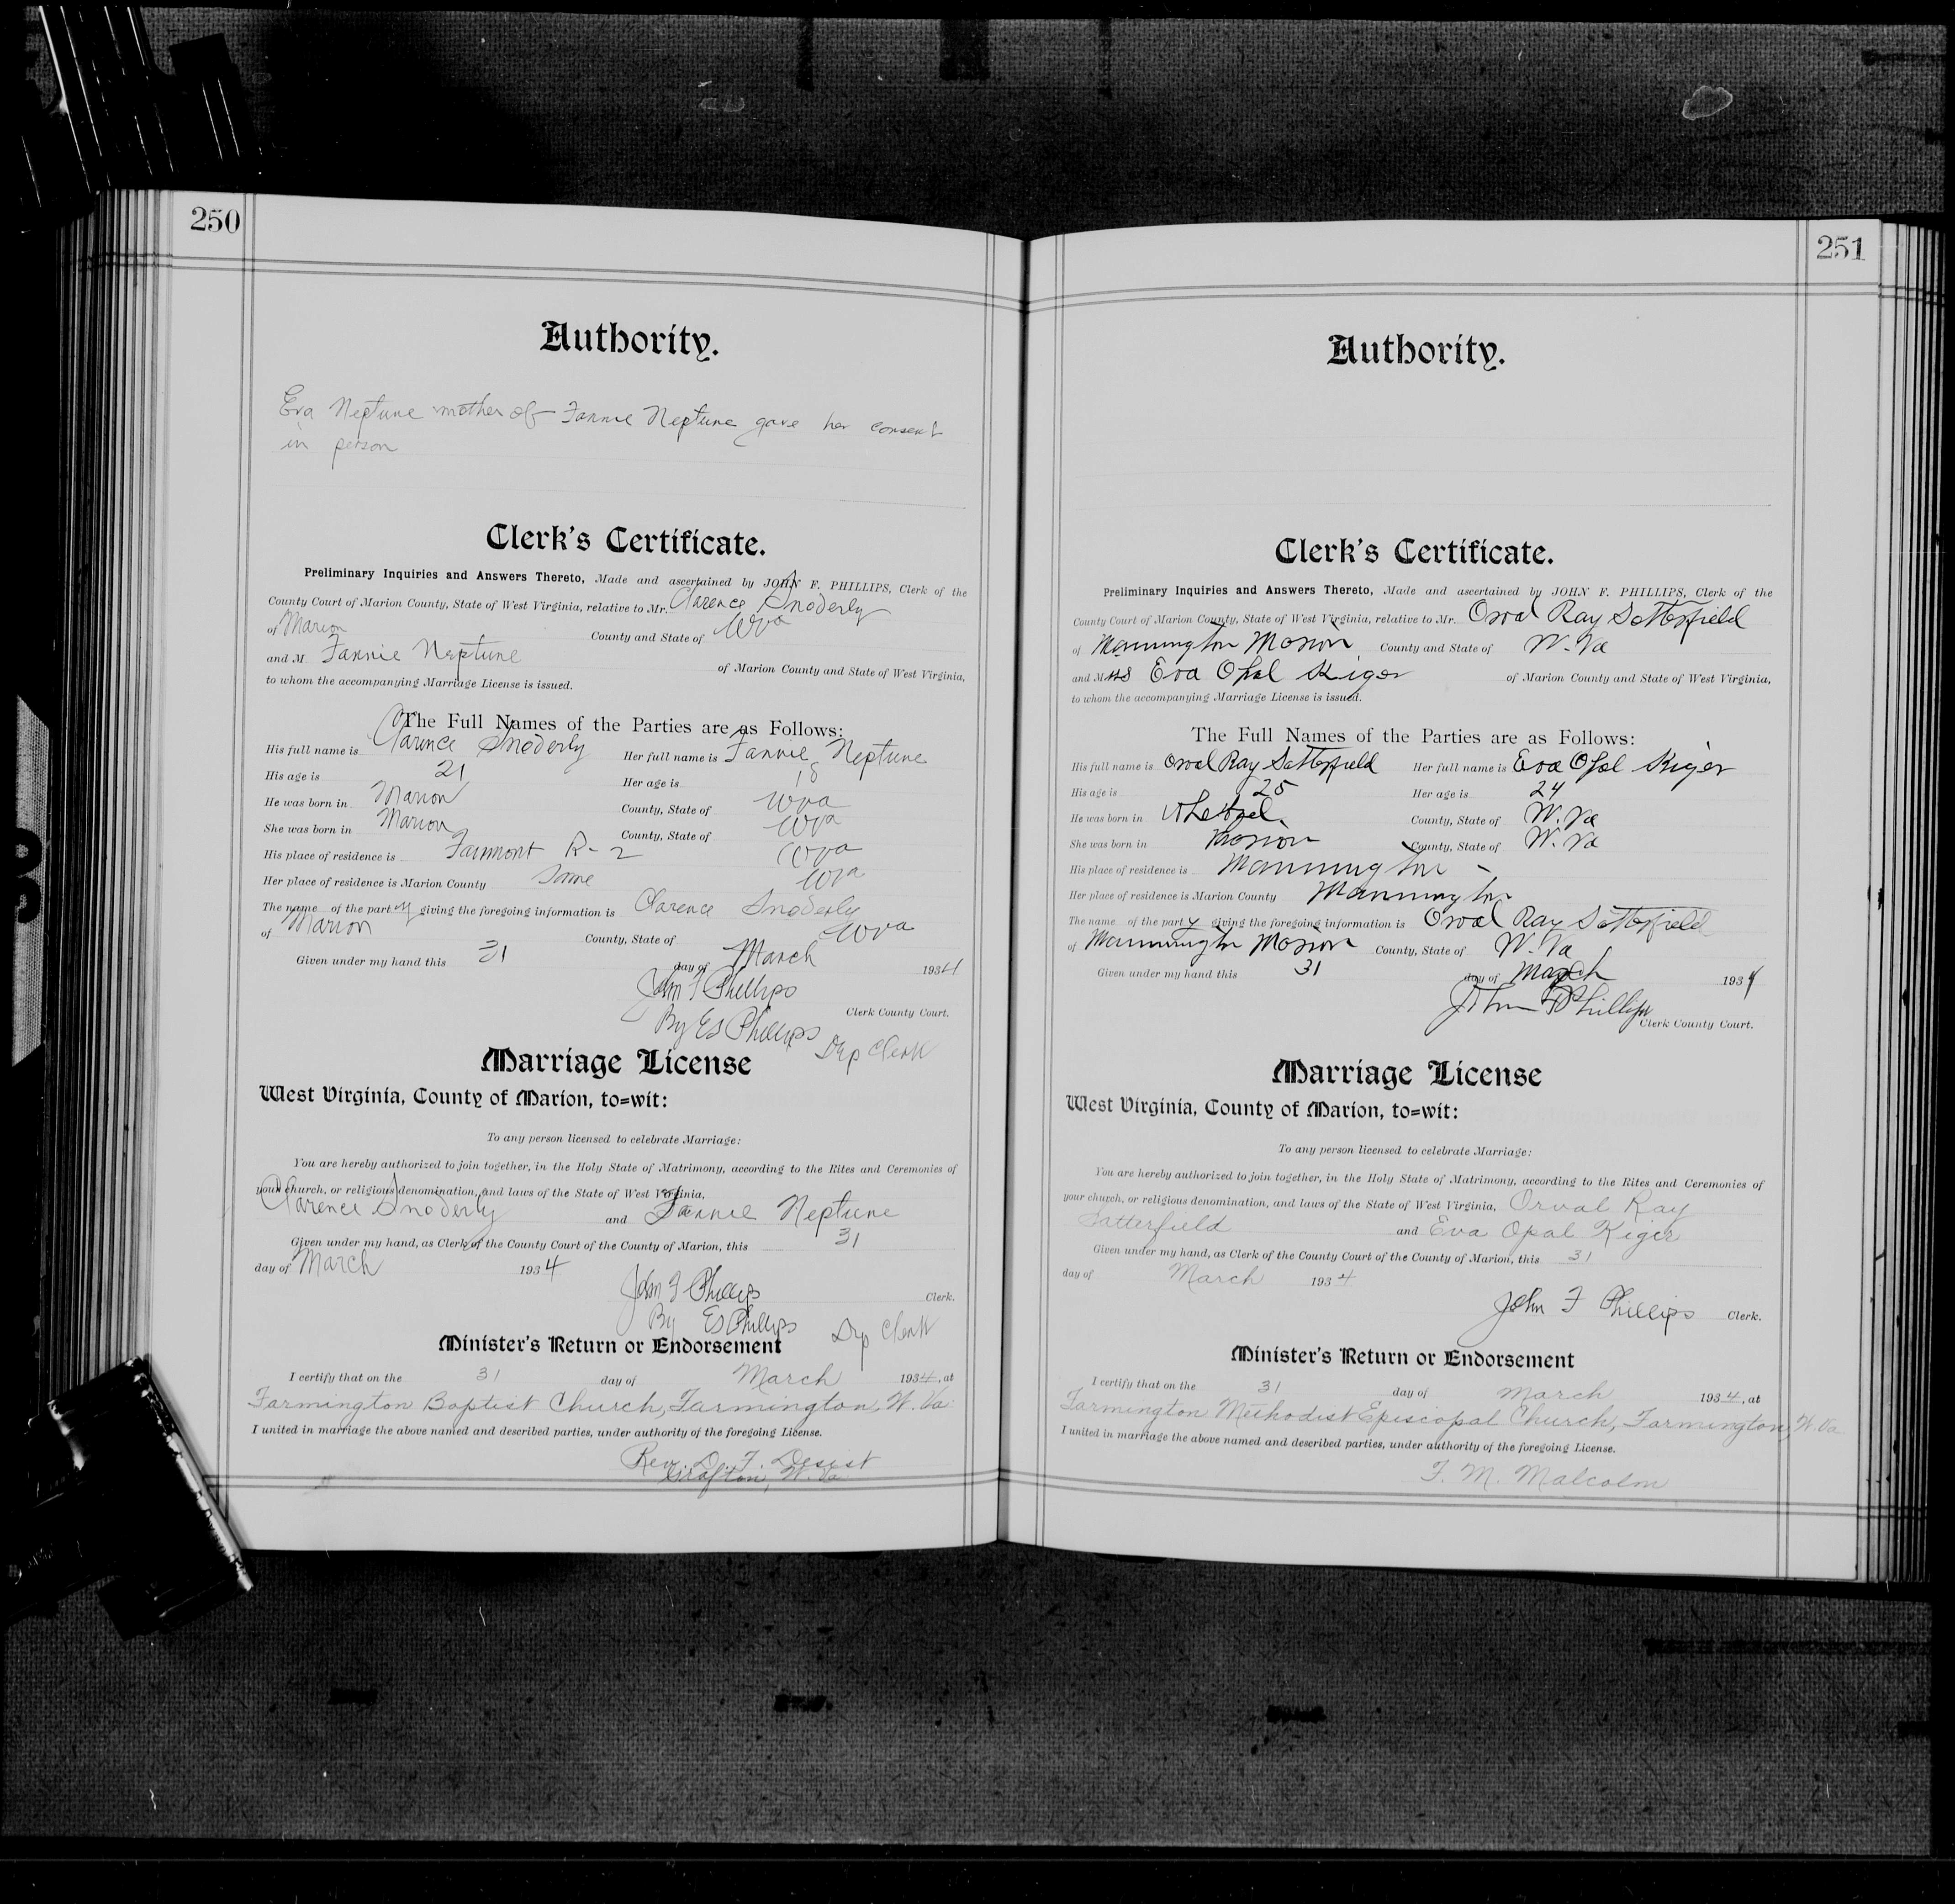 250
Authority.
Eva Neptune mother of Fannie Neptune gave her consent
in person
Clerk's Certificate.
Preliminary Inquiries and Answers Thereto, Made and ascertained by JOHN F. PHILLIPS, Clerk of the
County Court of Marion County, State of West Virginia, relative to Mr. Clarence Snoderly
of Marion County and State of Wva
and M Fannie Neptune of Marion County and State of West Virginia,
to whom the accompanying Marriage License is issued.
The Full Names of the Parties are as Follows:
His full name is Clarence Snoderly Her full name is Fannie Neptune
His age is 21 Her age is 18
He was born in Marion County, State of Wva
She was born in Marion County, State of Wva
His place of residence is Fairmont R-2 Wva
Her place of residence is Marion County Same Wva
The name of the party giving the foregoing information is Clarence Snoderly
of Marion County, State of Wva
Given under my hand this 31 day of March 1934
John F Phillips
Clerk County Court.
By ES Phillips Dep Clerk
Marriage License
West Virginia, County of Marion, to=wit:
To any person licensed to celebrate Marriage:
You are hereby authorized to join together, in the Holy State of Matrimony, according to the Rites and Ceremonies of
your church, or religious denomination, and laws of the State of West Virginia,
Clarence Snoderly and Fannie Neptune
Given under my hand, as Clerk of the County Court of the County of Marion, this 31
day of March 1934
John F Phillips Clerk.
By ES Phillips Dep Clerk
Minister's Return or Endorsement
I certify that on the 31 day of March 1934, at
Farmington Baptist Church, Farmington, W. Va.
I united in marriage the above named and described parties, under authority of the foregoing License.
Rev. D. F. Desist
Grafton, W. Va.
251
Authority.
Clerk's Certificate.
Preliminary Inquiries and Answers Thereto, Made and ascertained by JOHN F. PHILLIPS, Clerk of the
County Court of Marion County, State of West Virginia, relative to Mr. Orval Ray Satterfield
of Mannington Marion County and State of W. Va
and Miss Eva Opal Kiger of Marion County and State of West Virginia,
to whom the accompanying Marriage License is issued.
The Full Names of the Parties are as Follows:
His full name is Orval Ray Satterfield Her full name is Eva Opal Kiger
His age is 25 Her age is 24
He was born in Wetzel County, State of W. Va
She was born in Marion County, State of W. Va
His place of residence is Mannington -
Her place of residence is Marion County Mannington
The name of the party giving the foregoing information is Orval Ray Satterfield
of Mannington Marion County, State of W. Va
Given under my hand this 31 day of March 1934
John F Phillips
Clerk County Court.
Marriage License
West Virginia, County of Marion, to=wit:
To any person licensed to celebrate Marriage:
You are hereby authorized to join together, in the Holy State of Matrimony, according to the Rites and Ceremonies of
your church, or religious denomination, and laws of the State of West Virginia, Orval Ray
Satterfield and Eva Opal Kiger
Given under my hand, as Clerk of the County Court of the County of Marion, this 31
day of March 1934
John F Phillips Clerk.
Minister's Return or Endorsement
I certify that on the 31 day of March 1934, at
Farmington Methodist Episcopal Church, Farmington, W. Va.
I united in marriage the above named and described parties, under authority of the foregoing License.
F. M. Malcolm